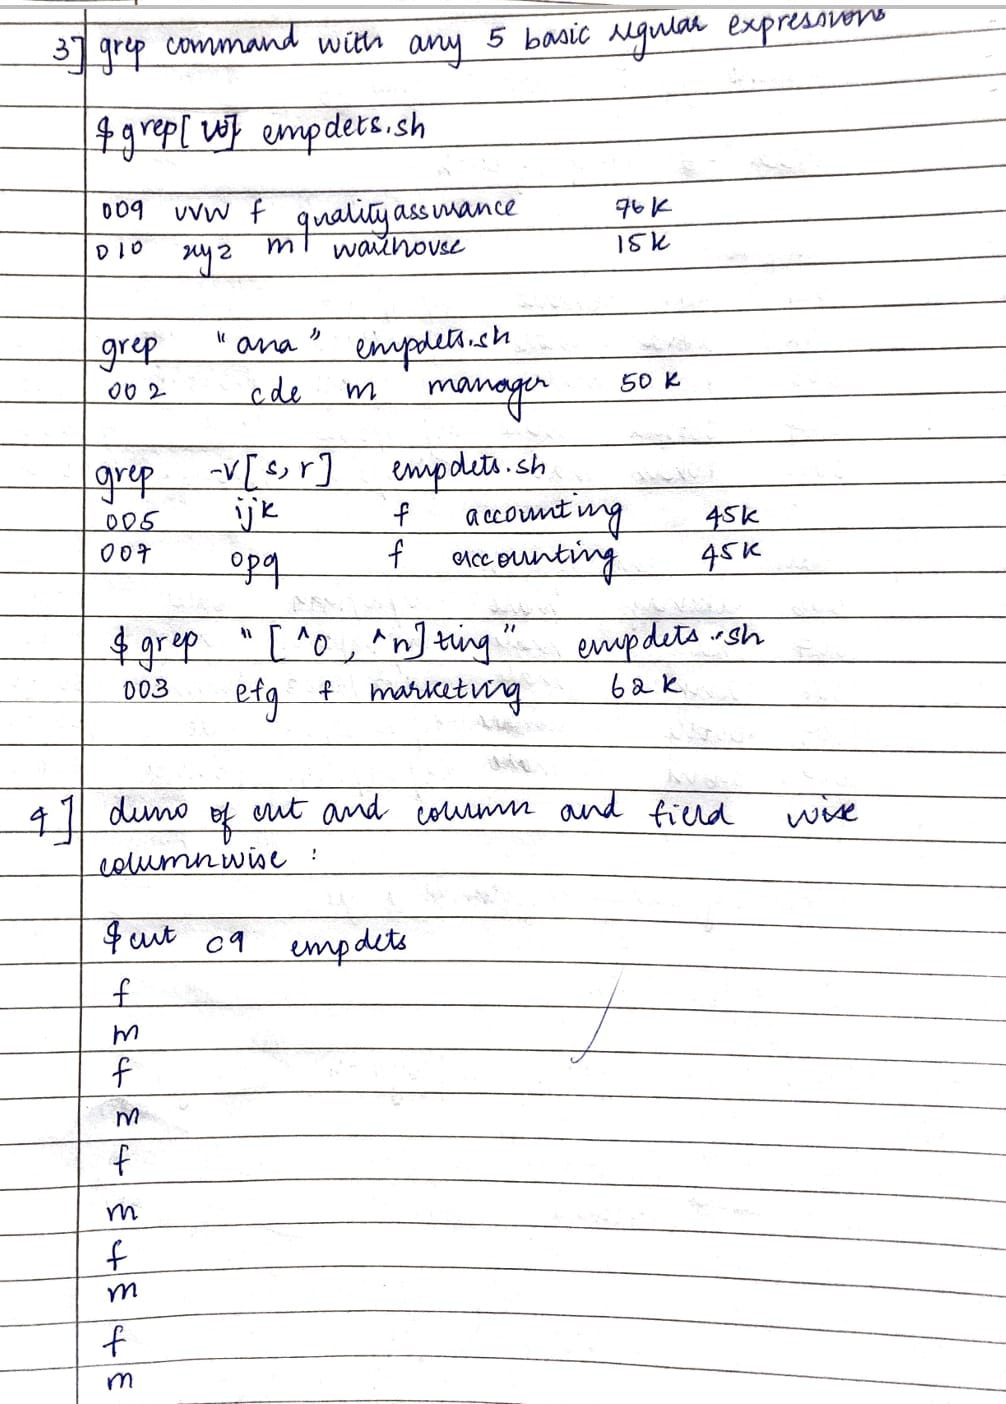 3] grep command with any 5 basic regular expressions
$ grep [w] empdets.sh
009 uvw f qualityassurance 76k
010 xyz m warehouse 15k
grep "ana" empdets.sh
002 cde m manager 50k
grep -v[s,r] empdets.sh
005 ijk f accounting 45k
007 opq f accounting 45k
$ grep "[^o, ^n]ting" empdets.sh
003 efg f marketing 62k
4] demo of cut and column and field wise
columnwise :
$ cut c9 empdets
f
m
f
m
f
m
f
m
f
m